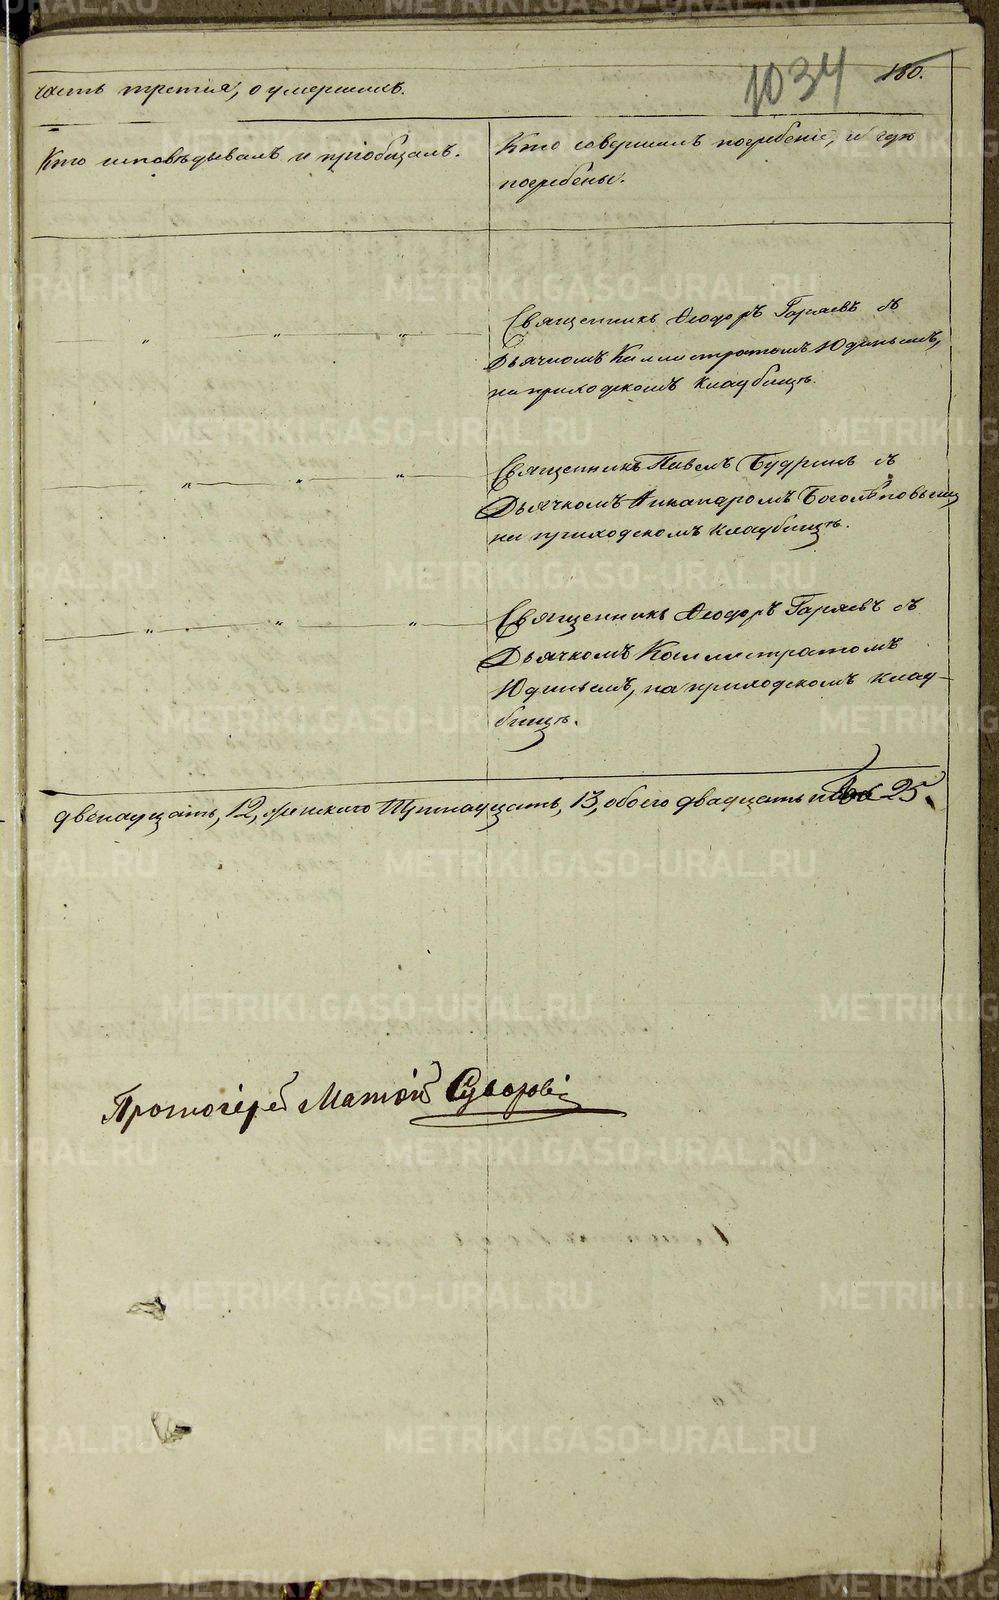 1034 180.
часть третія, о умершихъ.
Кто исповѣдывалъ и пріобщалъ.
Кто совершилъ погребеніе, и гдѣ
погребены.
Священникъ Ѳеодоръ Гаряевъ съ
Дьячкомъ Каллистратомъ Юдинымъ,
на приходскомъ кладбищѣ.
Священникъ Павелъ Будринъ съ
Дьячкомъ Никаноромъ Боголѣповымъ
на приходскомъ кладбищѣ.
Священникъ Ѳеодоръ Гаряевъ съ
Дьячкомъ Каллистратомъ
Юдинымъ, на приходскомъ клад-
бищѣ.
двенадцать, 12, женскаго Тринадцать, 13, обоего двадцать пять 25.
Протоіерей Матѳій Суворовъ
METRIKI.GASO-URAL.RU